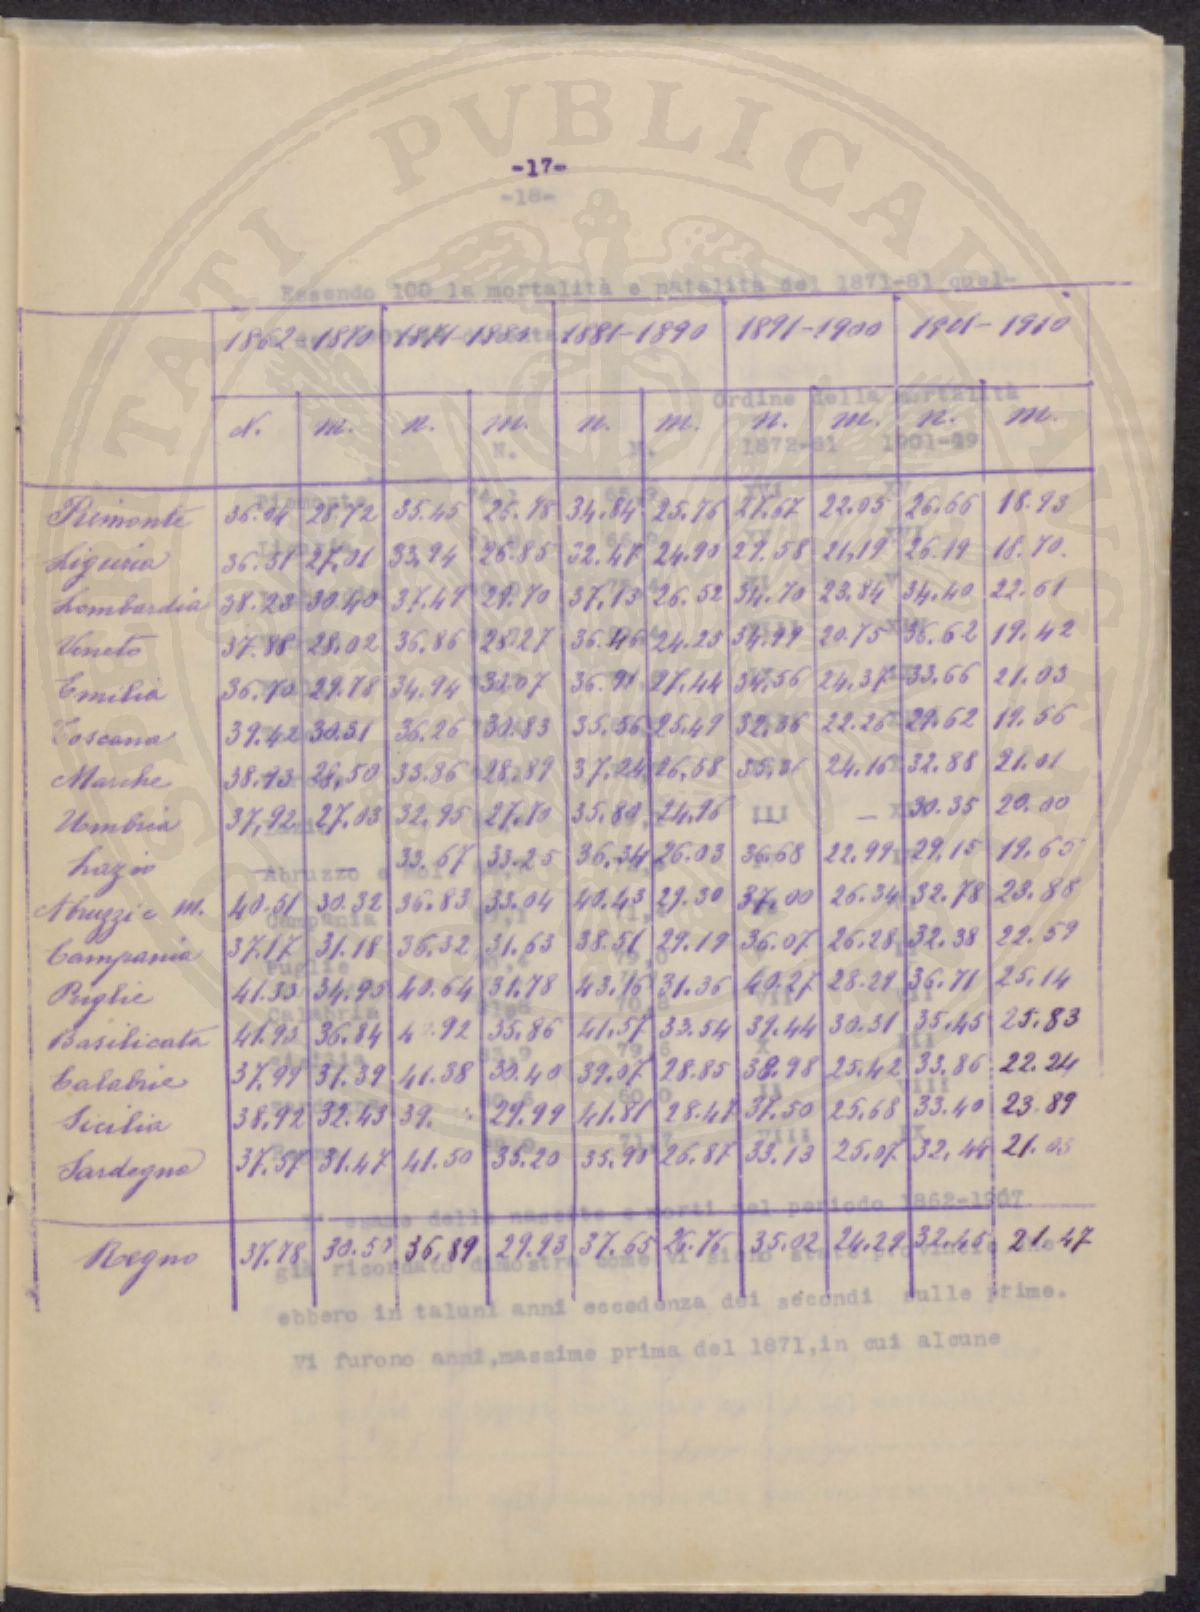 -17-
1862-1870 1871-1880 1881-1890 1891-1900 1901-1910
N. m. n. m. n. m. n. m. n. m.
Piemonte 28.72 35.45 26.78 34.84 25.76 22.05 26.66 18.93
Liguria 36.51 27,01 33,94 26.85 32.47 24.90 29.58 21,19 26.19 18.70.
Lombardia 38.23 30.40 37.49 29.70 37,13 26.52 34.70 23.84 34,40 22.61
Veneto 37.88 28.02 36.86 28.27 36.46 24.23 34.99 20.75 36.62 19.42
Emilia 36.70 29.78 34.94 36.91 27,44 34,56 24,37 33,66 21.03
Toscana 39.42 30.51 36.26 30.83 35.56 25.49 32,36 22.26 29.62 19.56
Marche 28,50 33.86 28.89 37,24 26,58 24.16 32.88 21.01
Umbria 37,92 27.03 32,95 27,70 35.80 24,96 — — 30.35 20.00
Lazio — — 33.67 33.25 36,34 26.03 36.68 22.99 29,15 19.65
Abruzzi e M. 40.51 30.32 36.83 33.04 40.43 29.30 37,00 26.34 32.78 23.88
Campania 37.17 31.18 36,32 31.63 38.51 29.19 36.07 26.28 32.38 22.59
Puglie 41.33 34.95 40.64 31.78 43,16 31.36 40.27 28.29 36.71 25,14
Basilicata 41.95 36,84 35,86 41,57 33.54 39.44 30.31 35,45 25.83
Calabrie 37,99 31.39 41.38 30.40 39.07 28.85 38.98 25.42 33.86 22.24
Sicilia 38,92 32.43 39. 29.99 41.81 28.47 37.50 25,68 33.40 23.89
Sardegna 37.57 31.47 41.50 35.20 35.90 26.87 33.13 25.07 32,44
Regno 37.78 36,89 29.93 37,65 26.76 35.02 24,29 32.45 21.47